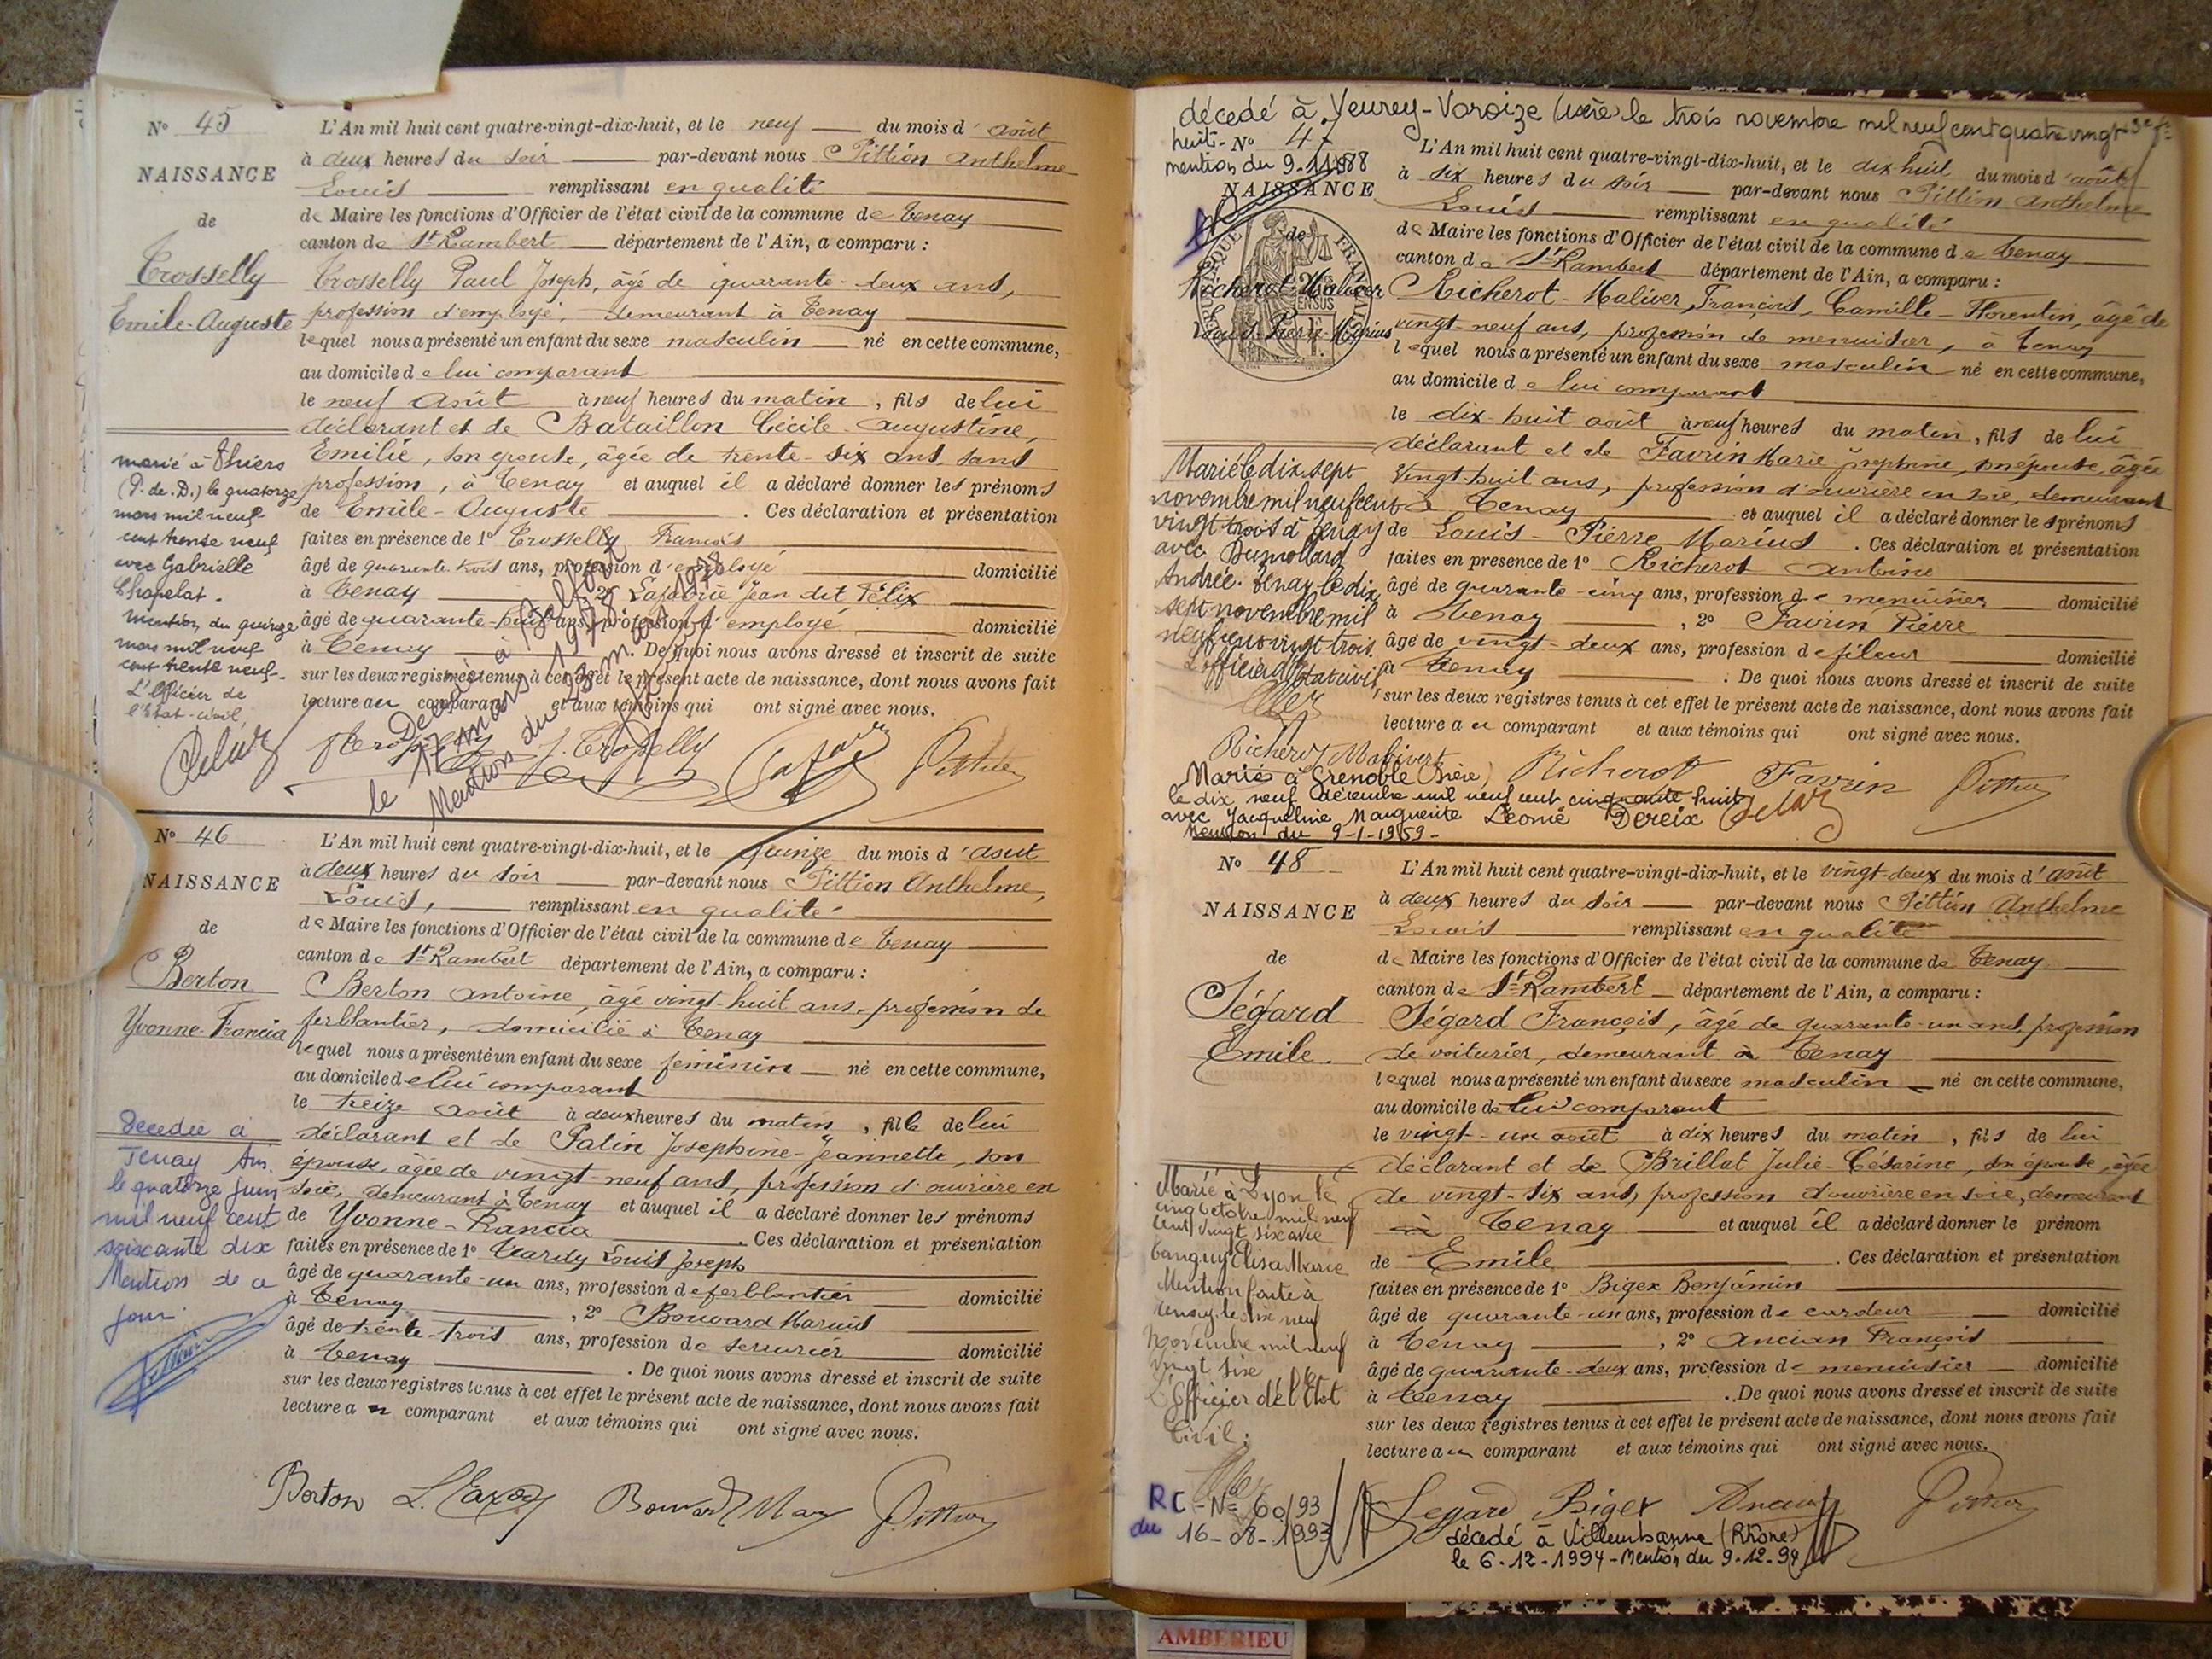 N° 45
NAISSANCE
de
Crosselly
Emile-Auguste
L'An mil huit cent quatre-vingt-dix-huit, et le neuf du mois d'août
à deux heures du soir par-devant nous Pittion Anthelme
Louis remplissant en qualité
de Maire les fonctions d'Officier de l'état civil de la commune de Tenay
canton de St Rambert département de l'Ain, a comparu :
Crosselly Paul Joseph, âgé de quarante-deux ans,
profession d'employé, demeurant à Tenay
lequel nous a présenté un enfant du sexe masculin né en cette commune,
au domicile de lui comparant
le neuf août à neuf heures du matin, fils de lui
déclarant et de Bataillon Cécile-Augustine,
Emilie, son épouse, âgée de trente-six ans, sans
profession, à Tenay et auquel il a déclaré donner les prénoms
de Emile-Auguste. Ces déclaration et présentation
faites en présence de 1° Crosselly François
âgé de quarante trois ans, profession d'employé domicilié
à Tenay, 2° Jean dit Félix
âgé de quarante-huit ans, profession d'employé domicilié
à Tenay. De quoi nous avons dressé et inscrit de suite
sur les deux registres tenus à cet effet le présent acte de naissance, dont nous avons fait
lecture au comparant et aux témoins qui ont signé avec nous.
marié à Thiers
(P. de D.) le quatorze
mars mil neuf
cent trente neuf
avec Gabrielle
Chapelat.
Mention du quinze
mars mil neuf
cent trente neuf.
L'Officier de
l'Etat-civil,
Décédé à Belfort
le 17 mars 1978
Mention du 23 mars 1978
N° 46
NAISSANCE
de
Berton
Yvonne-Francia
L'An mil huit cent quatre-vingt-dix-huit, et le quinze du mois d'août
à deux heures du soir par-devant nous Pittion Anthelme,
Louis, remplissant en qualité
de Maire les fonctions d'Officier de l'état civil de la commune de Tenay
canton de St Rambert département de l'Ain, a comparu :
Berton Antoine, âgé vingt-huit ans, profession de
ferblantier, domicilié à Tenay
lequel nous a présenté un enfant du sexe féminin né en cette commune,
au domicile de lui comparant
le treize août à deux heures du matin, fille de lui
déclarant et de Patin Josephine-Jeannette, son
épouse, âgée de vingt-neuf ans, profession d'ouvrière en
soie, demeurant à Tenay et auquel il a déclaré donner les prénoms
de Yvonne-Francia. Ces déclaration et présentation
faites en présence de 1° Louis Joseph
âgé de quarante-un ans, profession de ferblantier domicilié
à Tenay, 2° Bouvard Marius
âgé de trente-trois ans, profession de serrurier domicilié
à Tenay. De quoi nous avons dressé et inscrit de suite
sur les deux registres tenus à cet effet le présent acte de naissance, dont nous avons fait
lecture au comparant et aux témoins qui ont signé avec nous.
Décédée à
Tenay Ain.
le quatorze juin
mil neuf cent
soixante dix
Mention de ce
jour.
Berton
décédé à Veurey-Voroize (Isère) le trois novembre mil neuf cent quatre vingt
huit - N° 47
mention du 9.11.1988
NAISSANCE
de
Richerot-Malivert
Louis Pierre-Marius
L'An mil huit cent quatre-vingt-dix-huit, et le dix huit du mois d'août
à six heures du soir par-devant nous Pittion Anthelme
Louis remplissant en qualité
de Maire les fonctions d'Officier de l'état civil de la commune de Tenay
canton de St Rambert département de l'Ain, a comparu :
Richerot-Maliver, François, Camille-Florentin, âgé de
vingt-neuf ans, profession de menuisier, à Tenay
lequel nous a présenté un enfant du sexe masculin né en cette commune,
au domicile de lui comparant
le dix-huit août à neuf heures du matin, fils de lui
déclarant et de Favrin Marie-Josephine, son épouse, âgée
vingt-huit ans, profession d'ouvrière en soie, demeurant
à Tenay et auquel il a déclaré donner les prénoms
de Louis-Pierre Marius. Ces déclaration et présentation
faites en présence de 1° Richerot Antoine
âgé de quarante-cinq ans, profession de menuisier domicilié
à Tenay, 2° Favrin Pierre
âgé de vingt-deux ans, profession de fileur domicilié
à Tenay. De quoi nous avons dressé et inscrit de suite
sur les deux registres tenus à cet effet le présent acte de naissance, dont nous avons fait
lecture au comparant et aux témoins qui ont signé avec nous.
Marié le dix sept
novembre mil neuf cent
vingt trois à Tenay
avec Dumollard
Andrée. Tenay le dix
sept novembre mil
neuf cent vingt trois
L'officier de l'état civil,
Richerot Malivert Richerot Favrin
Marié à Grenoble (Isère)
le dix neuf décembre mil neuf cent cinquante huit
avec Jacqueline Marguerite Léonie Dereix
Mention du 9-1-1959-
N° 48
NAISSANCE
de
Ségard
Emile.
L'An mil huit cent quatre-vingt-dix-huit, et le vingt-deux du mois d'août
à deux heures du soir par-devant nous Pittion Anthelme
Louis remplissant en qualité
de Maire les fonctions d'Officier de l'état civil de la commune de Tenay
canton de St Rambert département de l'Ain, a comparu :
Ségard François, âgé de quarante-un ans, profession
de voiturier, demeurant à Tenay
lequel nous a présenté un enfant du sexe masculin né en cette commune,
au domicile de lui comparant
le vingt-un août à dix heures du matin, fils de lui
déclarant et de Brillat Julie-Césarine, son épouse, âgée
de vingt-six ans, profession d'ouvrière en soie, demeurant
à Tenay et auquel il a déclaré donner le prénom
de Emile. Ces déclaration et présentation
faites en présence de 1° Bigex Benjamin
âgé de quarante-un ans, profession de cardeur domicilié
à Tenay, 2° Ancian François
âgé de quarante-deux ans, profession de menuisier domicilié
à Tenay. De quoi nous avons dressé et inscrit de suite
sur les deux registres tenus à cet effet le présent acte de naissance, dont nous avons fait
lecture au comparant et aux témoins qui ont signé avec nous.
Marié à Lyon le
cinq Octobre mil neuf
cent vingt six avec
Tanguy Elisa Marie
Mention faite à
Tenay le dix neuf
Novembre mil neuf
vingt six
L'Officier de l'Etat
Civil.
RC - N° 60/93
du 16-08-1993
Segard Biget
décédé à Villeurbanne (Rhône)
le 6-12-1994 - Mention du 9-12-94
AMBERIEU